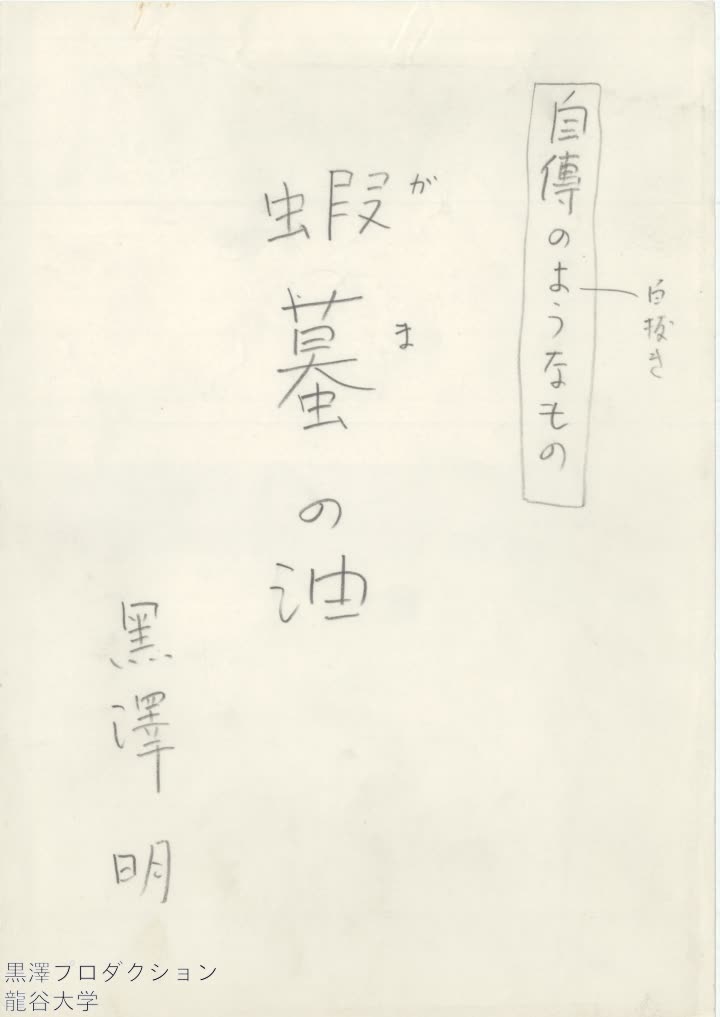 自傳のようなもの
白抜き
蝦蟇の油
がま
黒澤明
黒澤プロダクション
龍谷大学